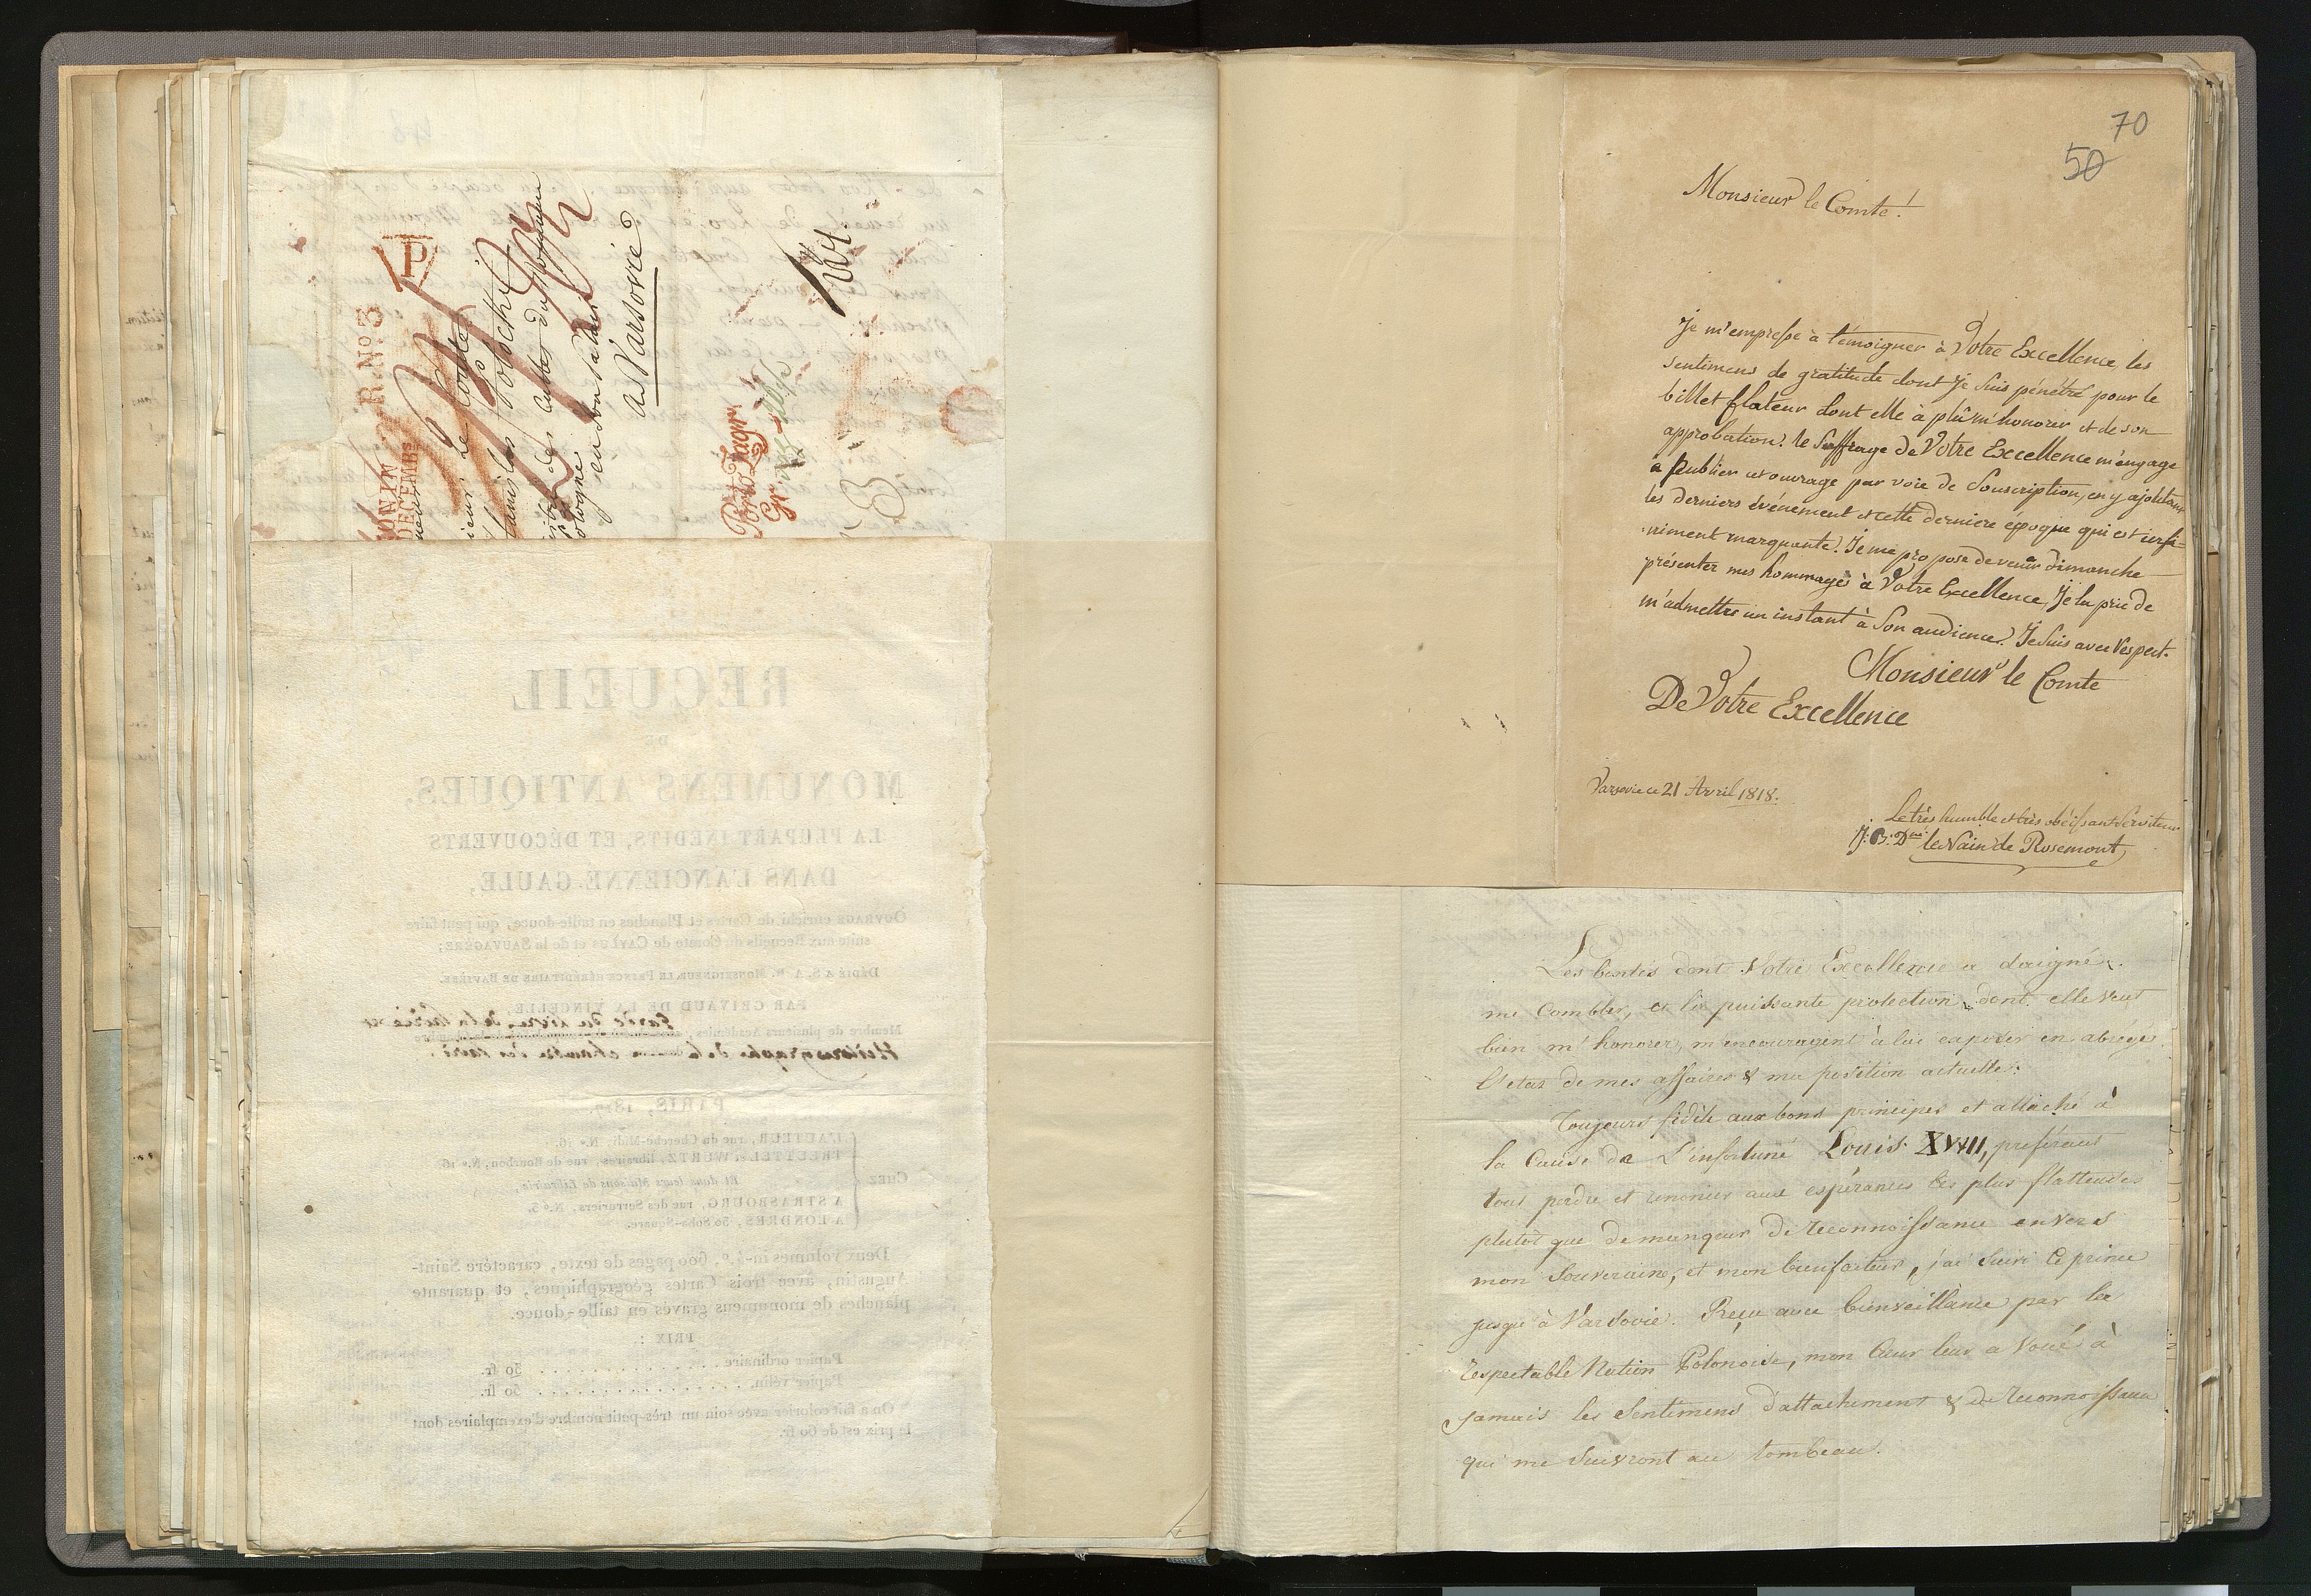 P
R.No.3
DECEMB
ieur Le Comte
Stanislas Potocki
Ministre des Cultes du Royaume
Pologne en son Palais
à Varsovie
Porto Zagr:
Gr:
RECUEIL
DE
MONUMENS ANTIQUES,
LA PLUPART INÉDITS, ET DÉCOUVERTS
DANS L'ANCIENNE GAULE,
OUVRAGE enrichi de Cartes et Planches en taille-douce, qui peut faire
suite aux Recueils du Comte de CAYLUS et de la SAUVAGÈRE;
DÉDIÉ A S. A. R. MONSEIGNEUR LE PRINCE HÉRÉDITAIRE DE BAVIÈRE.
PAR GRIVAUD DE LA VINCELLE,
Membre de plusieurs Académies,
de la chambre des Pairs.
PARIS, 1817.
CHEZ
L'AUTEUR, rue du Cherche-Midi, N.° 16.
TREUTTEL et WURTZ, libraires, rue de Bourbon, N.° 16
Et dans leurs Maisons de Librairie,
A STRASBOURG, rue des Serruriers, N.° 3,
A LONDRES, 30 Soho-Square.
Deux volumes in-4.°, 600 pages de texte, caractère Saint-
Augustin, avec trois Cartes géographiques, et quarante
planches de monumens gravés en taille-douce.
PRIX :
Papier ordinaire
Papier vélin
On a fait colorier avec soin un très-petit nombre d'exemplaires dont
le prix est de 60 fr.
70
50
Monsieur le Comte!
Je m'empresse à témoigner à Votre Excellence, les
sentimens de gratitude dont je suis pénétré pour le
billet flateur dont elle à plû m'honorer et de son
approbation. le Suffrage de Votre Excellence m'engage
a publier cet ouvrage par voie de Souscription, en y ajoutant
les derniers événement et cette derniere époque qui est infi=
niment marquante. Je me propose de venir dimanche
présenter mes hommages à Votre Excellence, Je la prie de
m'admettre un instant à Son audience. Je Suis avec respect.
Monsieur le Comte
De Votre Excellence
Varsovie ce 21 Avril 1818.
Le très humble et très obéissant Serviteur
J. B. Dque le Nain de Rosemont
Les bontés dont Votre Excellence a daigné
me Combler, et la puissante protection dont elle veut
bien m'honorer, m'encouragent à lui exposer en abrégé
l'etat de mes affaires & ma position actuelle:
Toujours fidèle aux bons principes et attaché à
la Cause de L'infortuné Louis XVIII, préférant
tout perdre et renoncer aux espérances les plus flatteuses
plutôt que de manquer de reconnoissance envers
mon Souverain, et mon bienfaiteur, j'ai Suivi Ce prince
jusqu'à Varsovie. Reçu avec bienveillance par la
respectable Nation Polonoise, mon Cœur leur a voué à
jamais les Sentimens d'attachement & de reconnoissance
qui me Suivront au tombeau.